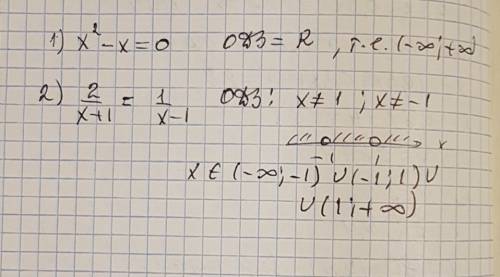 1) x² - x = 0   ОДЗ = R, т.е. (-∞; +∞
2) 2/(x+1) = 1/(x-1)   ОДЗ: x ≠ 1; x ≠ -1
-1 1 x
x ∈ (-∞; -1) ∪ (-1; 1) ∪
∪ (1; +∞)